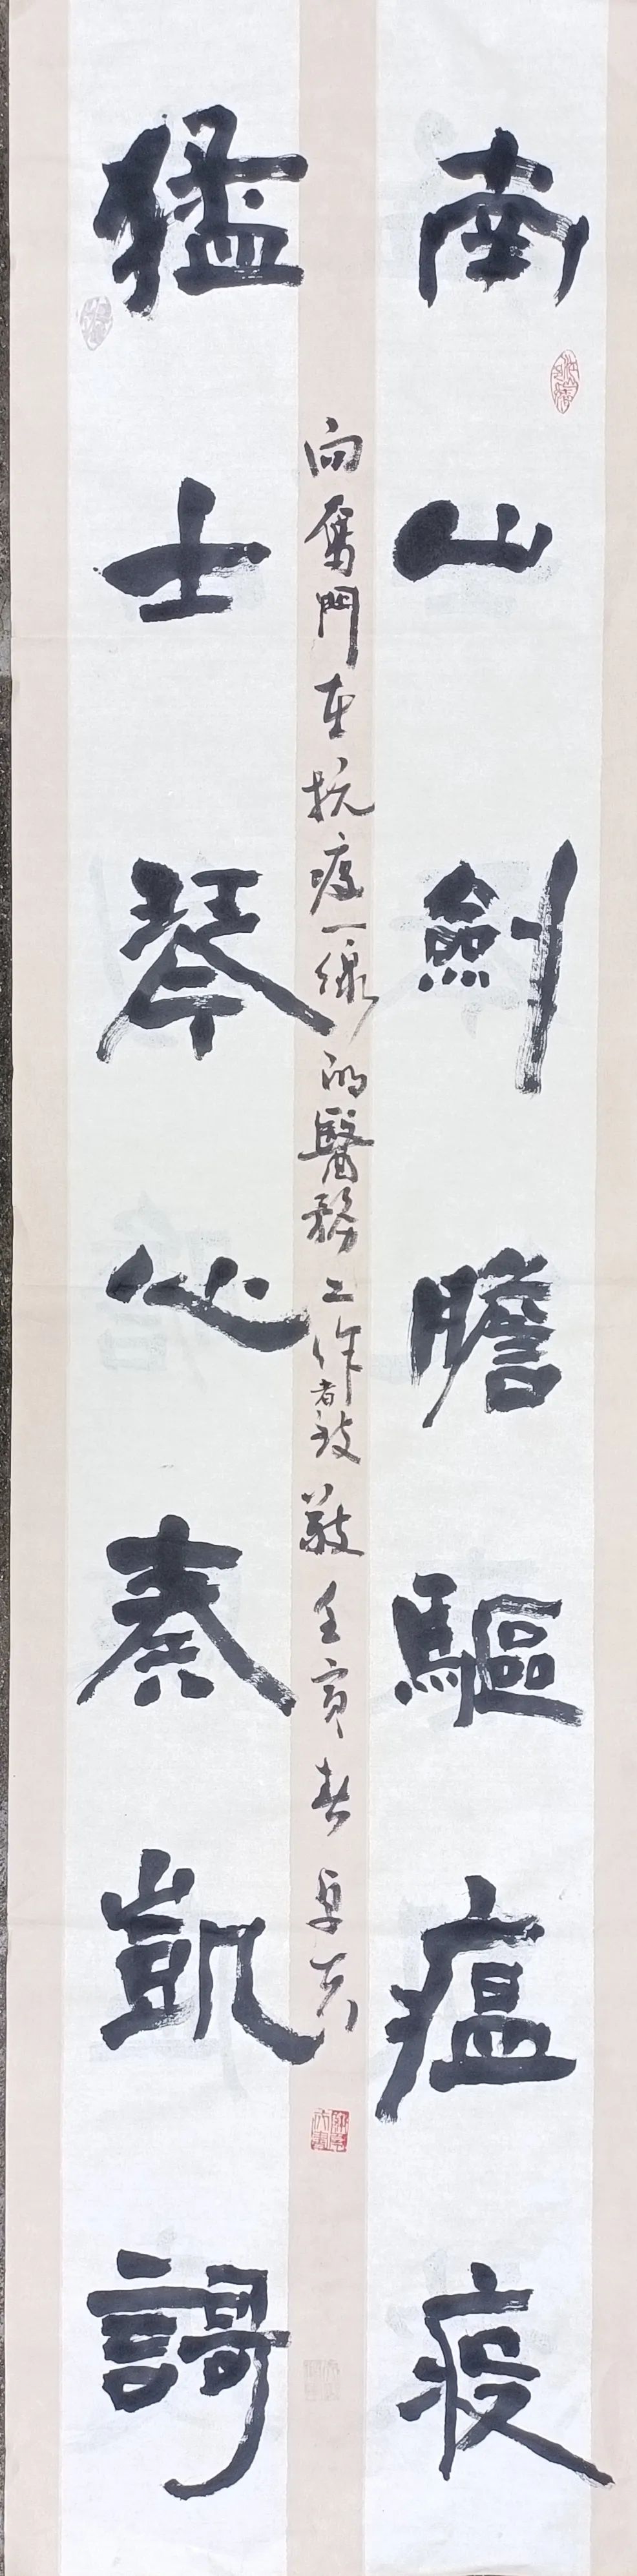 南山劍膽驅瘟疫
猛士琴心奏凱謌
向奮鬥在抗疫一線的醫務工作者致敬 壬寅春 卓夫